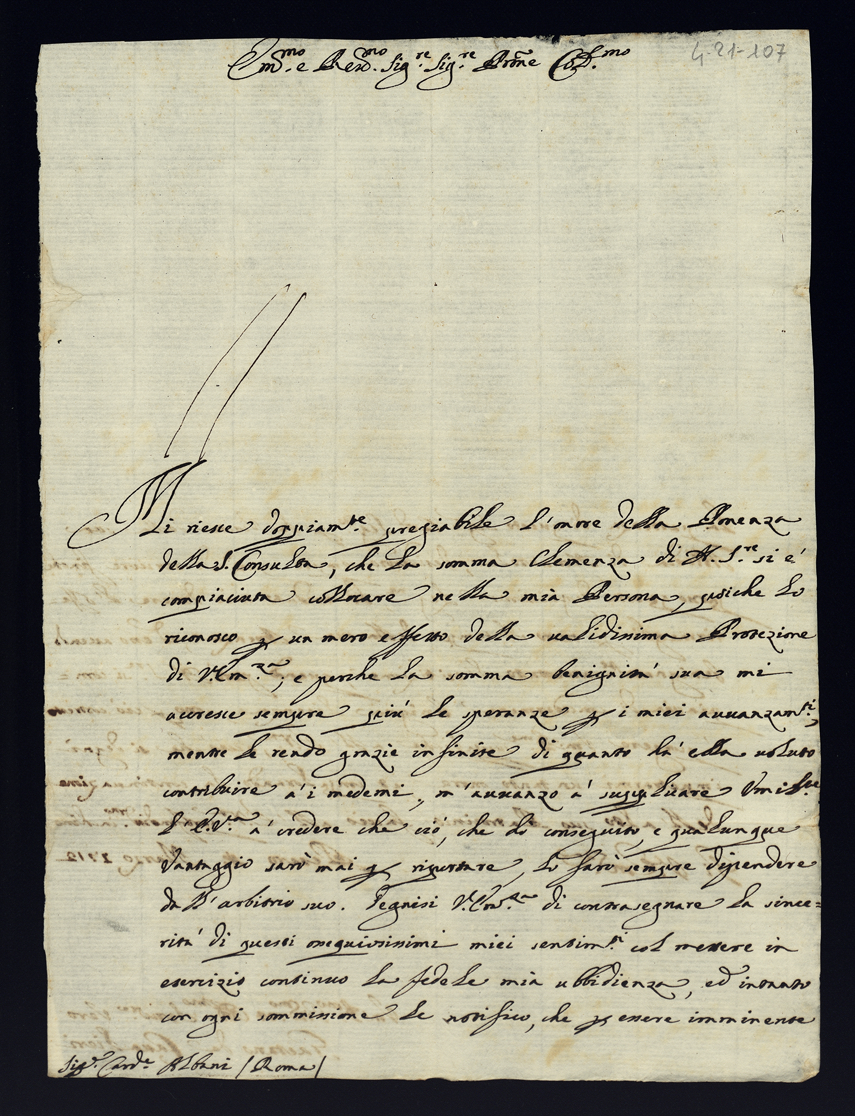 Em.mo e Rev.mo Sig.re Sig.re Prõne Col.mo
4-21-107
Mi riesce doppiam.te pregiabile l'onore della Ponenza
della S. Consulta, che la somma Clemenza di N. S.re si é
compiaciuta collocare nella mià Persona, poiche lo
riconosco p un mero effetto della validissima Protezione
di V. Em.za, e perche la somma benignitá sua mi
accresce sempre piú le speranze p i miei avvanzam.ti,
mentre le rendo grazie infinite di quanto há ella voluto
contribuire á i medemi, m'avvanzo á supplicare Umilm.te
l'E. V.ra á credere che ció, che hó conseguito, e qualunque
Vantaggio saró mai p riportare, lo faró sempre dipendere
dall'arbitrio suo. Degnisi V. Em.za di contrasegnare la since=
ritá di questi ossequiosissimi miei sentim.ti col mettere in
esercizio continuo la fedele mià ubbidienza, ed intanto
con ogni sommissione le notifico, che p essere imminente
Sig.r Card.e Albani (Roma)